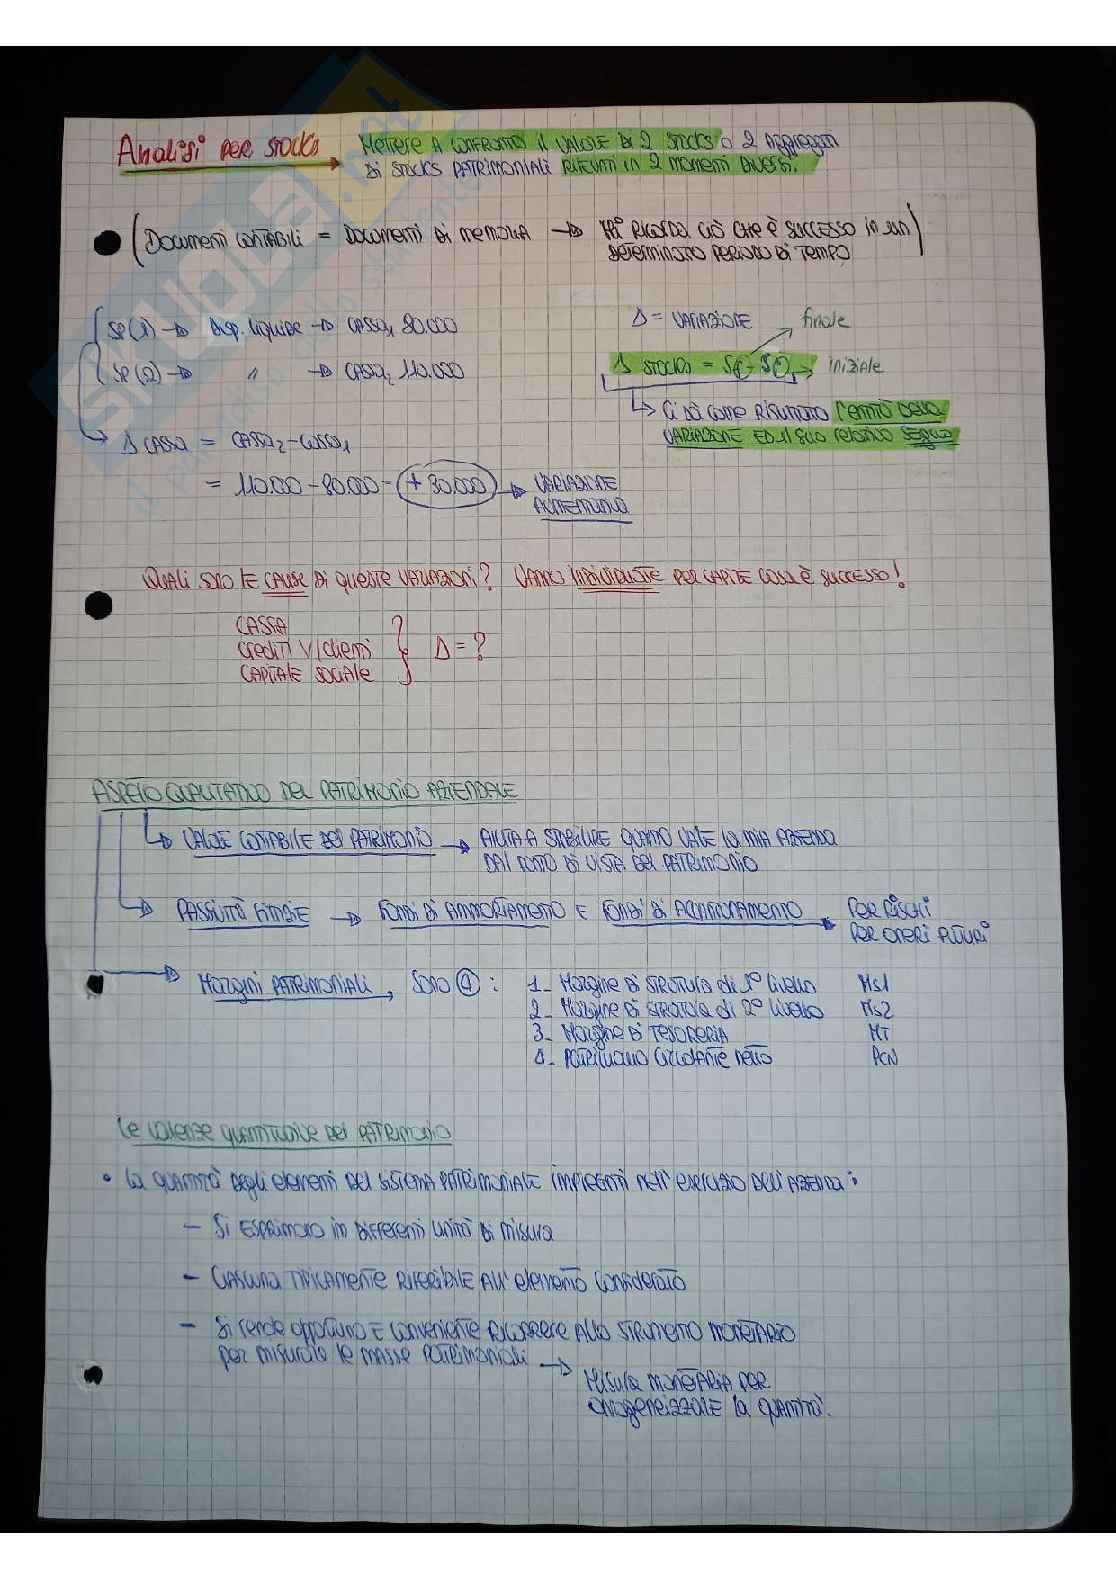 Analisi per stocks → Mettere a confronto il valore di 2 stocks o 2 aggregati
di stocks patrimoniali riferiti in 2 momenti diversi.
(Documenti contabili = Documenti di memoria → mi ricorda ciò che è successo in un
determinato periodo di tempo)
SP(1) → Disp. liquide → cassa1 80.000
SP(2) → " → cassa2 110.000
Δ cassa = cassa2 - cassa1
= 110.000 - 80.000 = +30.000 → variazione
aumentativa
Δ = variazione
finale
Δ stocks = Sf - Si → iniziale
↳ Ci dà come risultato l'entità della
variazione ed il suo relativo segno
Quali sono le cause di queste variazioni? Vanno individuate per capire cosa è successo!
Cassa
Crediti v/clienti
Capitale sociale
} Δ = ?
Aspetto qualitativo del patrimonio aziendale
↳ Valore contabile del patrimonio → Aiuta a stabilire quanto vale la mia azienda
dal punto di vista del patrimonio
→ Passività fittizie → Fondi di ammortamento e fondi di accantonamento → per rischi
per oneri futuri
→ Margini patrimoniali, sono 4: 1- Margine di struttura di 1° livello Ms1
2- Margine di struttura di 2° livello Ms2
3- Margine di tesoreria MT
4- Patrimonio circolante netto PCN
Le valenze quantitative del patrimonio
• La quantità degli elementi del sistema patrimoniale impiegati nell'esercizio dell'azienda:
- Si esprimono in differenti unità di misura
- Ciascuna tipicamente riferibile all'elemento considerato
- Si rende opportuno e conveniente ricorrere allo strumento monetario
per misurare le masse patrimoniali →
Misura monetaria per
omogeneizzare la quantità.
skuola.net